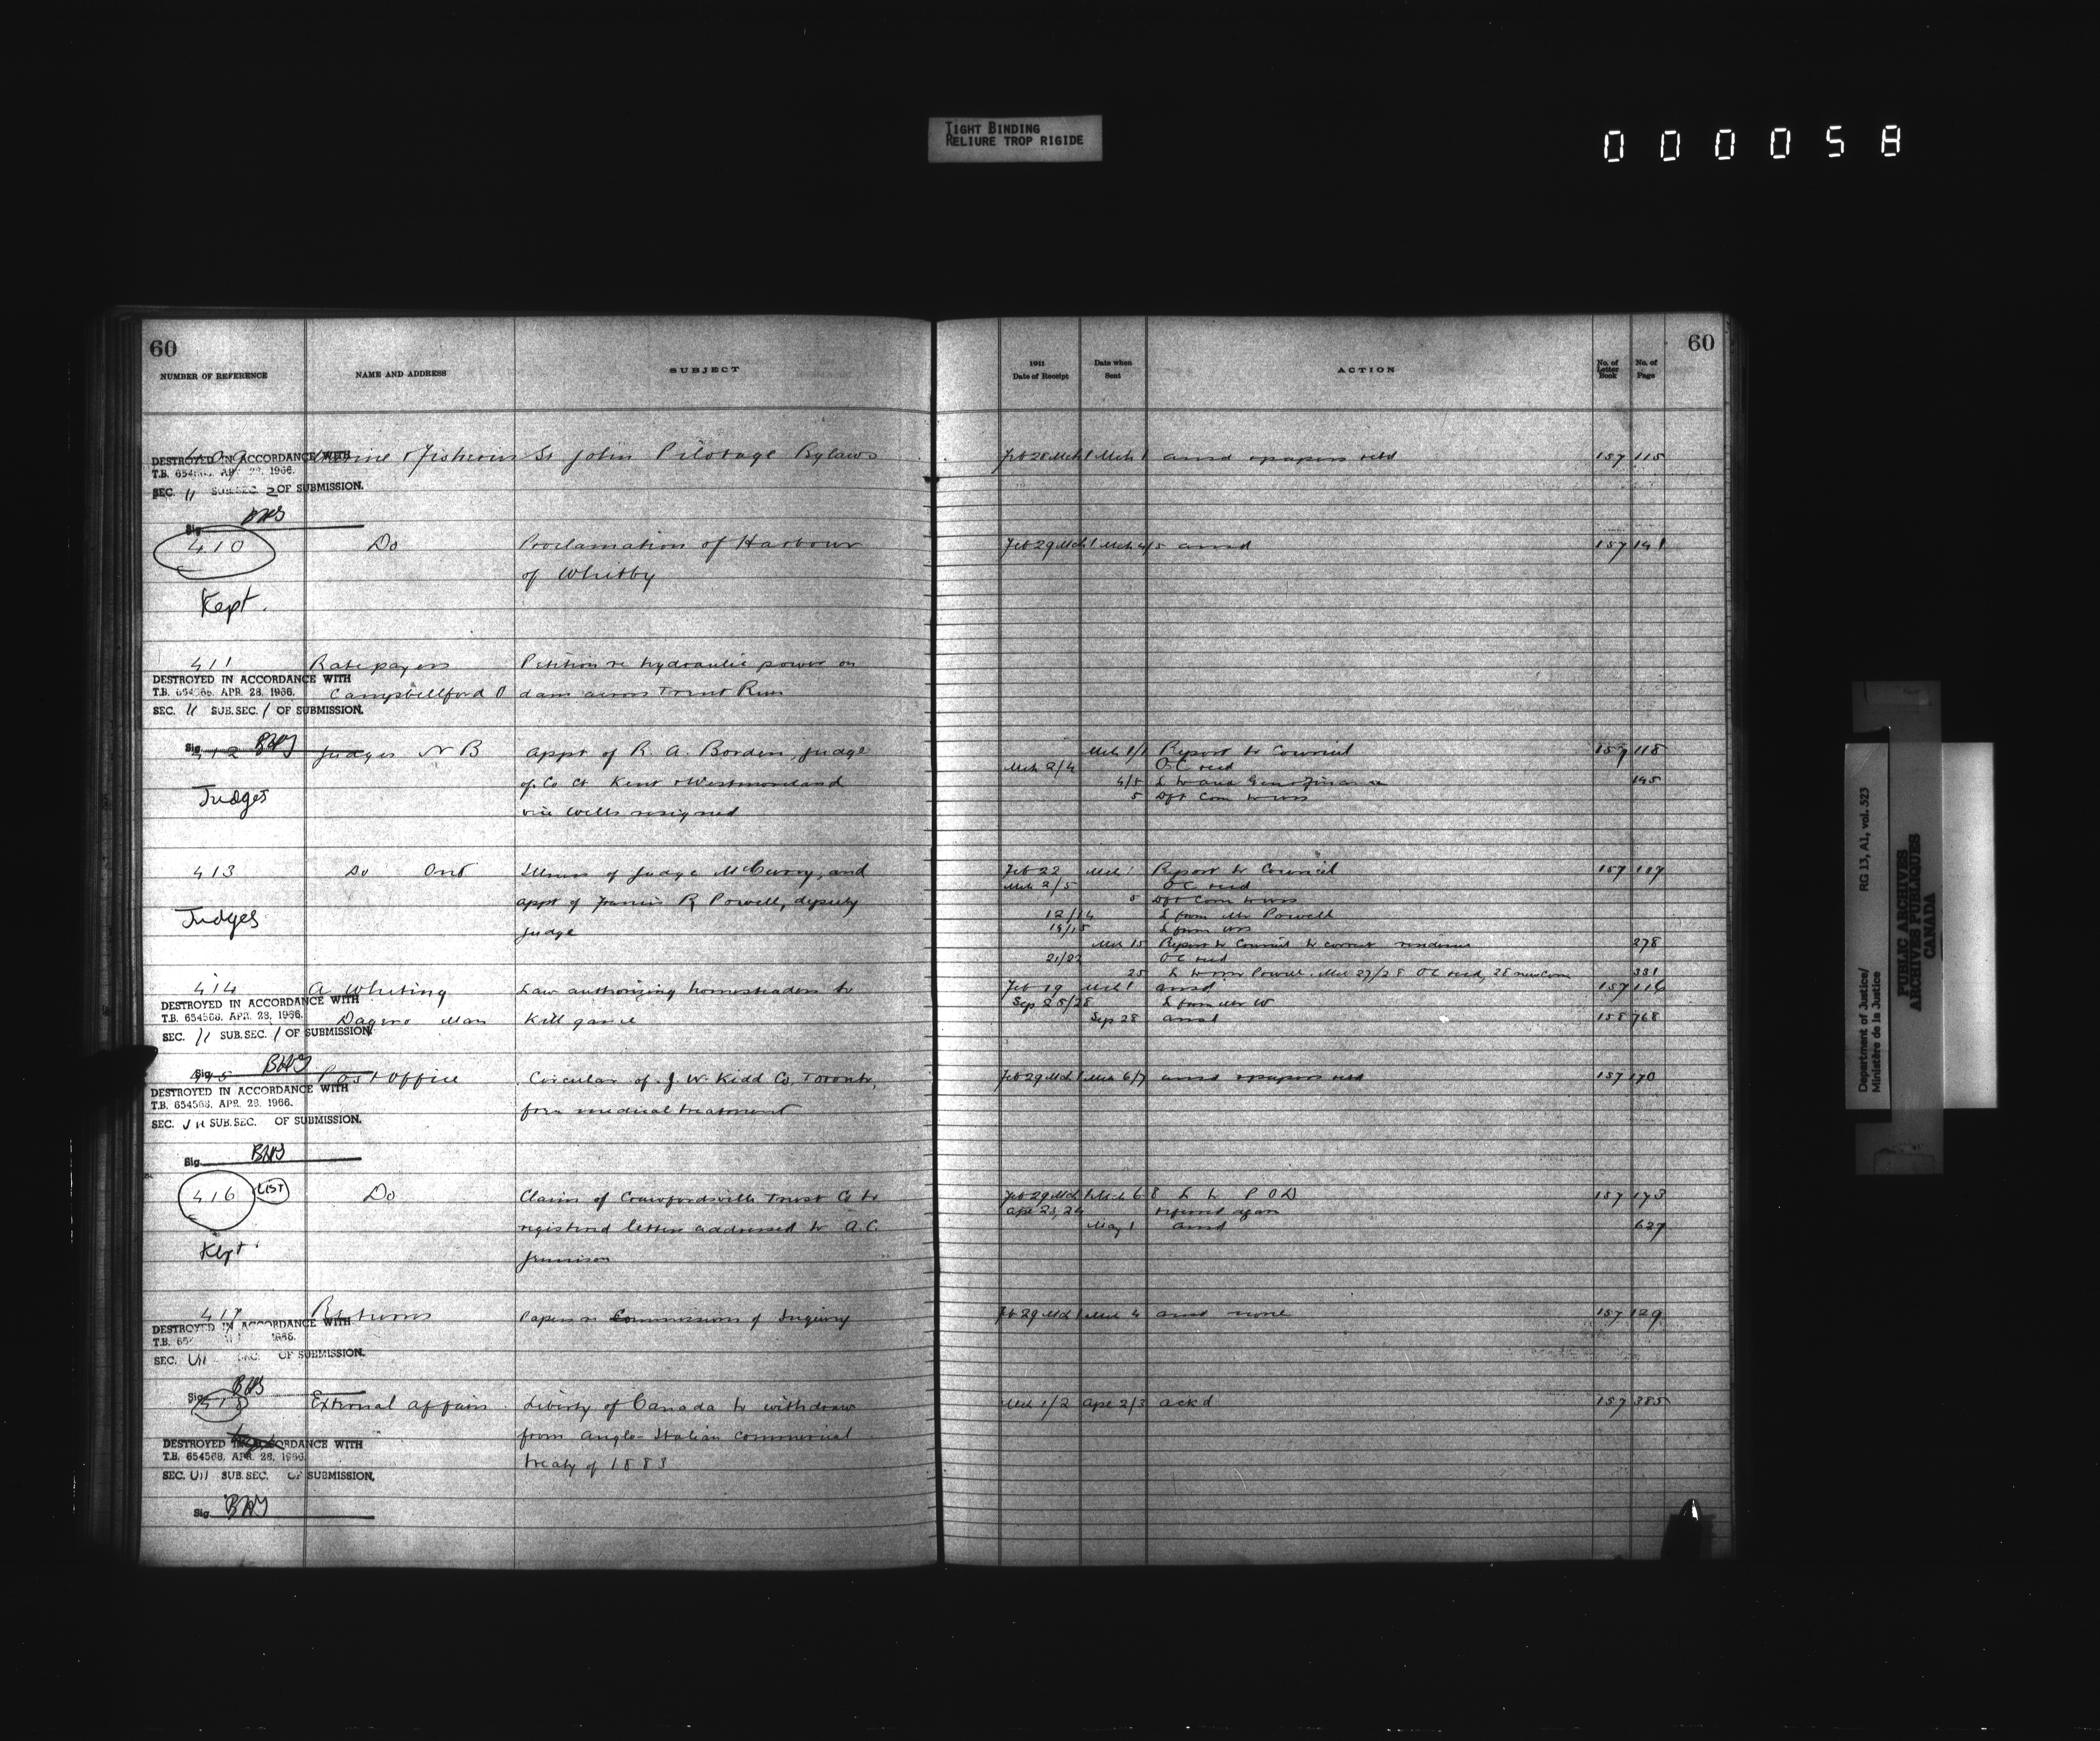 TIGHT BINDING
RELIURE TROP RIGIDE
000058
60
NUMBER OF REFERENCE NAME AND ADDRESS SUBJECT
409 Marine & Fisheries St John Pilotage Bylaws
DESTROYED IN ACCORDANCE WITH
T.B. 654568, APR. 28, 1966.
SEC. 11 SUB.SEC. 2 OF SUBMISSION.
Sig.
410 Do Proclamation of Harbour
of Whitby
Kept.
411 Ratepayers Petition re hydraulic power on
DESTROYED IN ACCORDANCE WITH
T.B. 654568, APR. 28, 1966. Campbellford O dam across Trent River
SEC. 11 SUB.SEC. 1 OF SUBMISSION.
Sig.
412 Judges N B appt of R. A. Borden, Judge
Judges of Co Ct Kent & Westmoreland
vice Wells resigned
413 Do Ont Illness of Judge McCurry, and
Judges appt of Francis R Powell, deputy
judge
414 A Whiting Law authorizing homesteaders to
DESTROYED IN ACCORDANCE WITH
T.B. 654568, APR. 28, 1966. Man Kill game
SEC. 11 SUB.SEC. 1 OF SUBMISSION
Sig.
415 Post Office Circular of J. W. Kidd Co, Toronto,
DESTROYED IN ACCORDANCE WITH
T.B. 654568, APR. 28, 1966. medical treatment
SEC. SUB.SEC. OF SUBMISSION.
Sig.
416 LIST Do Claim of Crawfordsville Trust Co to
registered letter addressed to A.C.
Kept Jennison
417 Returns Papers re Commissions of Inquiry
DESTROYED IN ACCORDANCE WITH
T.B. 1966.
SEC. OF SUBMISSION.
Sig.
418 External Affairs Liberty of Canada to withdraw
from Anglo-Italian commercial
DESTROYED IN ACCORDANCE WITH
T.B. 654568, APR. 28, 1966. treaty of 1883
SEC. SUB.SEC. OF SUBMISSION.
Sig.
60
1911 Date of Receipt Date when Sent ACTION No. of Letter Book No. of Page
Feb 28 Mch 1 Mch 1 ansd & papers retd 157 115
Feb 29 Mch 1 Mch 4/5 ansd 157 141
Mch 1/1 Report to Council 157 118
Mch 2/4 OC recd
4/5 L to and Finance 145
5 Dft Com to
Feb 22 Mch 1 Report to Council 157 107
Mch 2/5 OC recd
5 Dft Com to
12/14 L from Mr Powell
14/15 L from
Mch 15 Report to Council to correct 278
21/22 OC recd
25 L to Mr Powell. Mch 27/28 OC recd, 28 new Com 331
Feb 19 Mch 1 ansd 157 116
Sep 25/28 L from Mr W
Sep 28 ansd 158 768
Feb 29 Mch 1 Mch 6/7 ansd & papers retd 157 170
Feb 29 Mch 1 Mch 6 8 L to P O D 157 173
Apl 23, 24 referred again
May 1 ansd 627
Feb 29 Mch 1 Mch 4 ansd none 157 129
Mch 1/2 Apl 2/3 ackd 157 385
Department of Justice/ RG 13, A1, vol. 523
Ministère de la Justice
PUBLIC ARCHIVES
ARCHIVES PUBLIQUES
CANADA